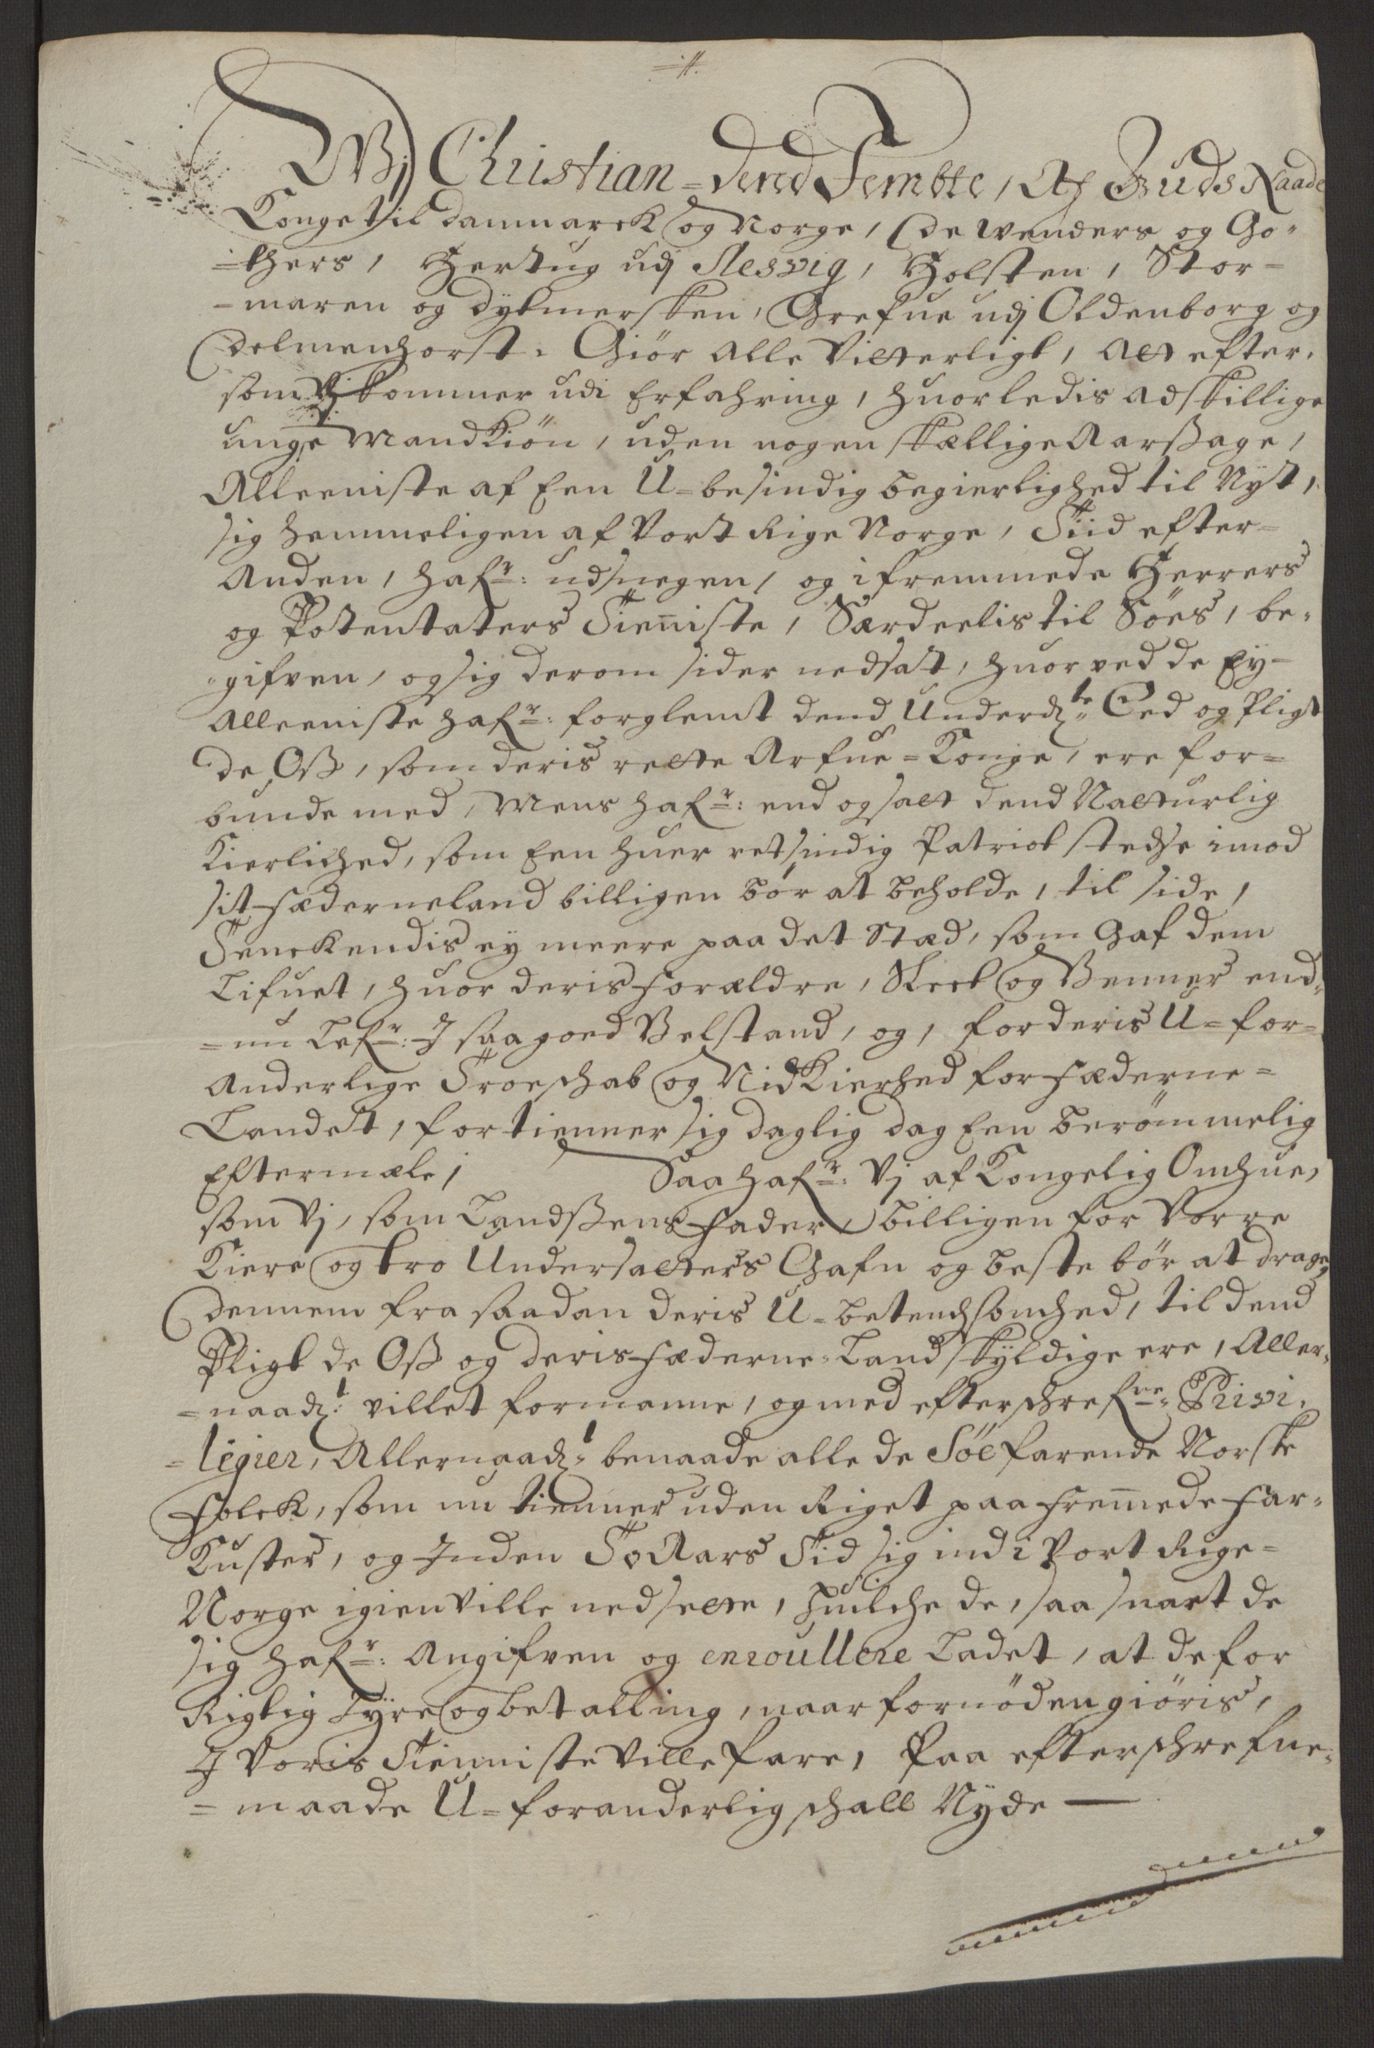 Wj Christian dend Fembte, Af Guds Naade
Konge til Danmarck og Norge, de Wenders og Go-
-thers, Hertug udj Slesvig, Holsten, Stor-
-maren og Dytmersken, Grefue udj Oldenborg og
Delmenhorst. Giör Alle Vitterligt, At efter-
som Vj kommer udi Erfahring, huorledis adskillige
unge Mandkiön, uden nogen skællige Aarßage,
Alleeniste af Een U-besindig begierlighed til Nyt,
sig hemmeligen af Vort Rige Norge, Tiid efter-
Anden, hafr: udsnegen, og i fremmede Herrers
og Potentaters Tieniste, Særdeelis til Söes, be-
-gifven, og sig derom sider nedsat, huorved de Ey-
Alleeniste hafr: forglemt dend Underdte Eed og Pligt
de Oß, som deris rette Arfue-Konge, ere for-
bunde med, Mens hafr: end og sat dend Naturlig
Kierlighed, som Een huer retsindig Patriot stedse imod
sit Fæderneland billigen bör at beholde, til side,
Tenckendis ey meere paa det Stæd, som Gaf dem
Lifuet, huor deris Forældre, Slect og Venner end-
-nu Lefr: J saa goed Velstand, og, for deris U-for-
Anderlige Troeschab og Nidkierhed for Fæderne-
Landet, fortienner sig daglig dag Een berömmelig
Eftermæle; Saa hafr: Vj af Kongelig Omhue,
som Vj, som Landßens Fader, billigen for Vorre
Kiere og tro Undersatters Gafn og beste bör at drage,
dennem fra saadan deris U-betenchsomhed, til dend
Pligt de Oß og deris Fæderne-Land skyldige ere, Aller-
-naadt: villet formanne, og med efterschrefne Privi-
-legier, Allernaadt: benaade alle de Söefarende Norske
Folck, som nu tienner uden Riget paa fremede Far-
Kuster, og Inden To Aars Tid sig ind i Vort Rige-
Norge igien Ville nedsette, huilche de, saa snart de
sig hafr: Angifven og enroullere Ladet, at de for
Rigtig Hyre og betalling, naar fornöden giöris,
J Voris Tienniste Ville fare, Paa efterschrefne-
-maade U-foranderlig schall Nyde